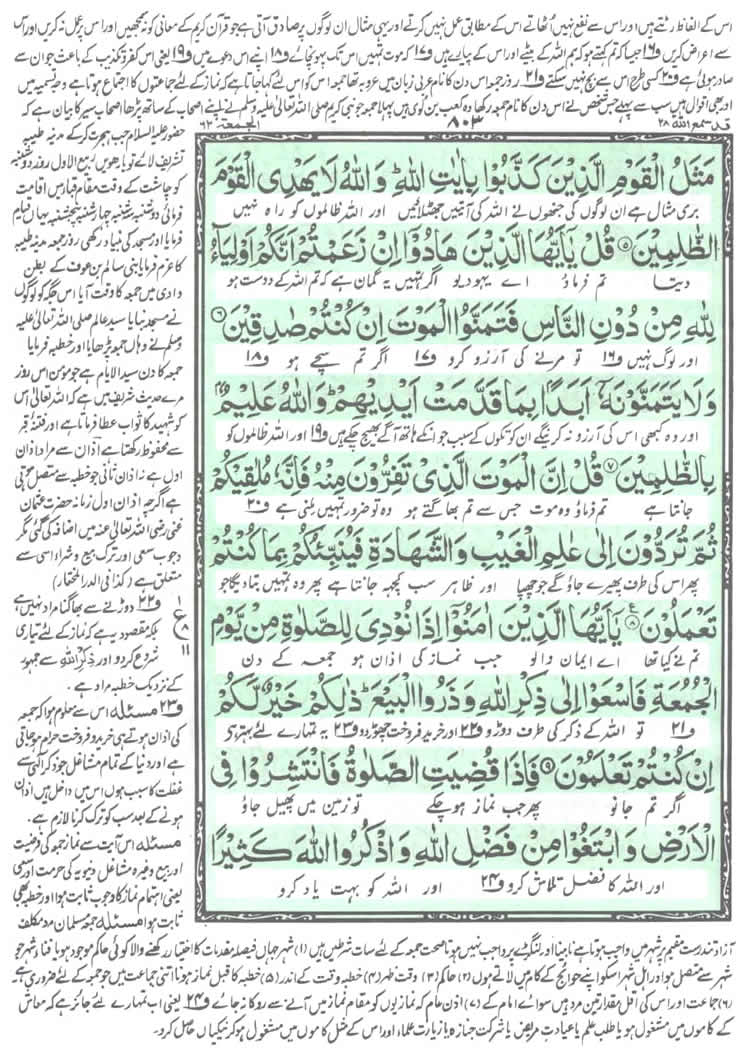 اس کے الفاظ رٹتے ہیں اور اس سے نفع نہیں اٹھاتے اس کے مطابق عمل نہیں کرتے اور یہی مثال ان لوگوں پر صادق آتی ہے جو قرآن کریم کے معانی کو نہ سمجھیں اور اس پر عمل نہ کریں اور اس
سے اعراض کریں و۱۶ جیسا کہ تم کہتے ہو کہ ہم اللہ کے بیٹے اور اس کے پیارے ہیں و۱۷ کہ موت تمہیں اس تک پہونچائے و۱۸ اپنے اس دعوے میں و۱۹ یعنی اس کفر و تکذیب کے باعث جو ان سے
صادر ہوئی ہے و۲۰ کسی طرح اس سے بچ نہیں سکتے و۲۱ روز جمعہ اس دن کا نام عربی زبان میں عروبہ تھا جمعہ اس کو اس لئے کہا جاتا ہے کہ نماز کے لئے جماعتوں کا اجتماع ہوتا ہے وجہ تسمیہ میں
اور بھی اقوال ہیں سب سے پہلے جس شخص نے اس دن کا نام جمعہ رکھا وہ کعب بن لوی ہیں پہلا جمعہ جو نبی کریم صلی اللہ تعالیٰ علیہ وسلم نے اپنے اصحاب کے ساتھ پڑھا اصحاب سیر کا بیان ہے کہ
قد سمع اللہ ۲۸
۸۰۳
الجمعة ۶۲
مَثَلُ الْقَوْمِ الَّذِیْنَ كَذَّبُوْا بِاٰیٰتِ اللّٰهِؕ وَ اللّٰهُ لَا یَهْدِی الْقَوْمَ
بری مثال ہے ان لوگوں کی جنھوں نے اللہ کی آیتیں جھٹلائیں اور اللہ ظالموں کو راہ نہیں
الظّٰلِمِیْنَ۝۵ قُلْ یٰۤاَیُّهَا الَّذِیْنَ هَادُوْۤا اِنْ زَعَمْتُمْ اَنَّكُمْ اَوْلِیَآءُ
دیتا تم فرماؤ اے یہودیو اگر تمہیں یہ گمان ہے کہ تم اللہ کے دوست ہو
لِلّٰهِ مِنْ دُوْنِ النَّاسِ فَتَمَنَّوُا الْمَوْتَ اِنْ كُنْتُمْ صٰدِقِیْنَ۝۶
اور لوگ نہیں و۱۶ تو مرنے کی آرزو کرو و۱۷ اگر تم سچے ہو و۱۸
وَ لَا یَتَمَنَّوْنَهٗۤ اَبَدًۢا بِمَا قَدَّمَتْ اَیْدِیْهِمْؕ وَ اللّٰهُ عَلِیْمٌۢ
اور وہ کبھی اس کی آرزو نہ کریں گے ان کوتکوں کے سبب جو انکے ہاتھ آگے بھیج چکے ہیں و۱۹ اور اللہ ظالموں کو
بِالظّٰلِمِیْنَ۝۷ قُلْ اِنَّ الْمَوْتَ الَّذِیْ تَفِرُّوْنَ مِنْهُ فَاِنَّهٗ مُلٰقِیْكُمْ
جانتا ہے تم فرماؤ وہ موت جس سے تم بھاگتے ہو وہ تو ضرور تمہیں ملنی ہے و۲۰
ثُمَّ تُرَدُّوْنَ اِلٰى عٰلِمِ الْغَیْبِ وَ الشَّهَادَةِ فَیُنَبِّئُكُمْ بِمَا كُنْتُمْ
پھر اس کی طرف پھیرے جاؤ گے جو چھپا اور ظاہر سب کچھ جانتا ہے پھر وہ تمہیں بتا دیگا جو
تَعْمَلُوْنَ۝۸ یٰۤاَیُّهَا الَّذِیْنَ اٰمَنُوْۤا اِذَا نُوْدِیَ لِلصَّلٰوةِ مِنْ یَّوْمِ
تم نے کیا تھا اے ایمان والو جب نماز کی اذان ہو جمعہ کے دن
الْجُمُعَةِ فَاسْعَوْا اِلٰى ذِكْرِ اللّٰهِ وَ ذَرُوا الْبَیْعَؕ ذٰلِكُمْ خَیْرٌ لَّكُمْ
و۲۱ تو اللہ کے ذکر کی طرف دوڑو و۲۲ اور خرید و فروخت چھوڑ دو و۲۳ یہ تمہارے لئے بہتر ہے
اِنْ كُنْتُمْ تَعْلَمُوْنَ۝۹ فَاِذَا قُضِیَتِ الصَّلٰوةُ فَانْتَشِرُوْا فِی
اگر تم جانو پھر جب نماز ہو چکے تو زمین میں پھیل جاؤ
الْاَرْضِ وَ ابْتَغُوْا مِنْ فَضْلِ اللّٰهِ وَ اذْكُرُوا اللّٰهَ كَثِیْرًا
اور اللہ کا فضل تلاش کرو و۲۴ اور اللہ کو بہت یاد کرو
حضور علیہ السلام جب ہجرت کر کے مدینہ طیبہ
تشریف لائے تو بارھویں ربیع الاول روز دوشنبہ
کو چاشت کے وقت مقام قباء میں اقامت
فرمائی دوشنبہ سہ شنبہ چہارشنبہ پنجشنبہ یہاں قیام
فرمایا اور مسجد کی بنیاد رکھی روز جمعہ مدینہ طیبہ
کا عزم فرمایا بنی سالم بن عوف کے بطن
وادی میں جمعہ کا وقت آیا اس جگہ کو لوگوں
نے مسجد بنایا سید عالم صلی اللہ تعالیٰ علیہ
وسلم نے وہاں جمعہ پڑھایا اور خطبہ فرمایا
جمعہ کا دن سید الایام ہے جو مومن اس روز
مرے حدیث شریف میں ہے کہ اللہ تعالیٰ اس
کو شہید کا ثواب عطا فرماتا ہے اور فتنۂ قبر
سے محفوظ رکھتا ہے اذان سے مراد اذان
اول ہے نہ اذان ثانی جو خطبہ سے متصل ہوتی
ہے اگرچہ اذان اول زمانہ حضرت عثمان
غنی رضی اللہ تعالیٰ عنہ میں اضافہ کی گئی مگر
وجوب سعی اور ترک بیع و شراء اسی سے
متعلق ہے (کذا فی الدرالمختار)
و۲۲ دوڑنے سے بھاگنا مراد نہیں ہے
بلکہ مقصود یہ ہے کہ نماز کے لئے تیاری
شروع کردو اور ذکر اللہ سے جمہور
کے نزدیک خطبہ مراد ہے۔
و۲۳ مسئلہ اس سے معلوم ہوا کہ جمعہ
کی اذان ہوتے ہی خرید و فروخت حرام ہو جاتی
ہے اور دنیا کے تمام مشاغل جو ذکر الٰہی سے
غفلت کا سبب ہوں اس میں داخل ہیں اذان
ہونے کے بعد سب کو ترک کرنا لازم ہے۔
مسئلہ اس آیت سے نماز جمعہ کی فرضیت
اور بیع وغیرہ مشاغل دنیویہ کی حرمت اور سعی
یعنی اہتمام نماز کا وجوب ثابت ہوا اور خطبہ بھی
ثابت ہوا مسئلہ جمعہ مسلمان مرد مکلف
۱
ع
۸
۱۱
آزاد تندرست مقیم پر شہر میں واجب ہوتا ہے نابینا اور لنگڑے پر واجب نہیں ہوتا صحت جمعہ کے لئے سات شرطیں ہیں (۱) شہر جہاں فیصلہ مقدمات کا اختیار رکھنے والا کوئی حاکم موجود ہو یا فناء شہر جو
شہر سے متصل ہو اور اہل شہر اسکو اپنے حوائج کے کام میں لاتے ہوں (۲) حاکم (۳) وقت ظہر (۴) خطبہ وقت کے اندر (۵) خطبہ کا قبل نماز ہونا اتنی جماعت میں جو جمعہ کے لئے ضروری ہے
(۶) جماعت اور اس کی اقل مقدار تین مرد ہیں سوائے امام کے (۷) اذن عام کہ نمازیوں کو مقام نماز میں آنے سے روکا نہ جائے و۲۴ یعنی اب تمہارے لئے جائز ہے کہ معاش
کے کاموں میں مشغول ہو یا طلب علم یا عیادت مریض یا شرکت جنازہ یا زیارت علماء اور اس کے مثل کاموں میں مشغول ہو کر نیکیاں حاصل کرو